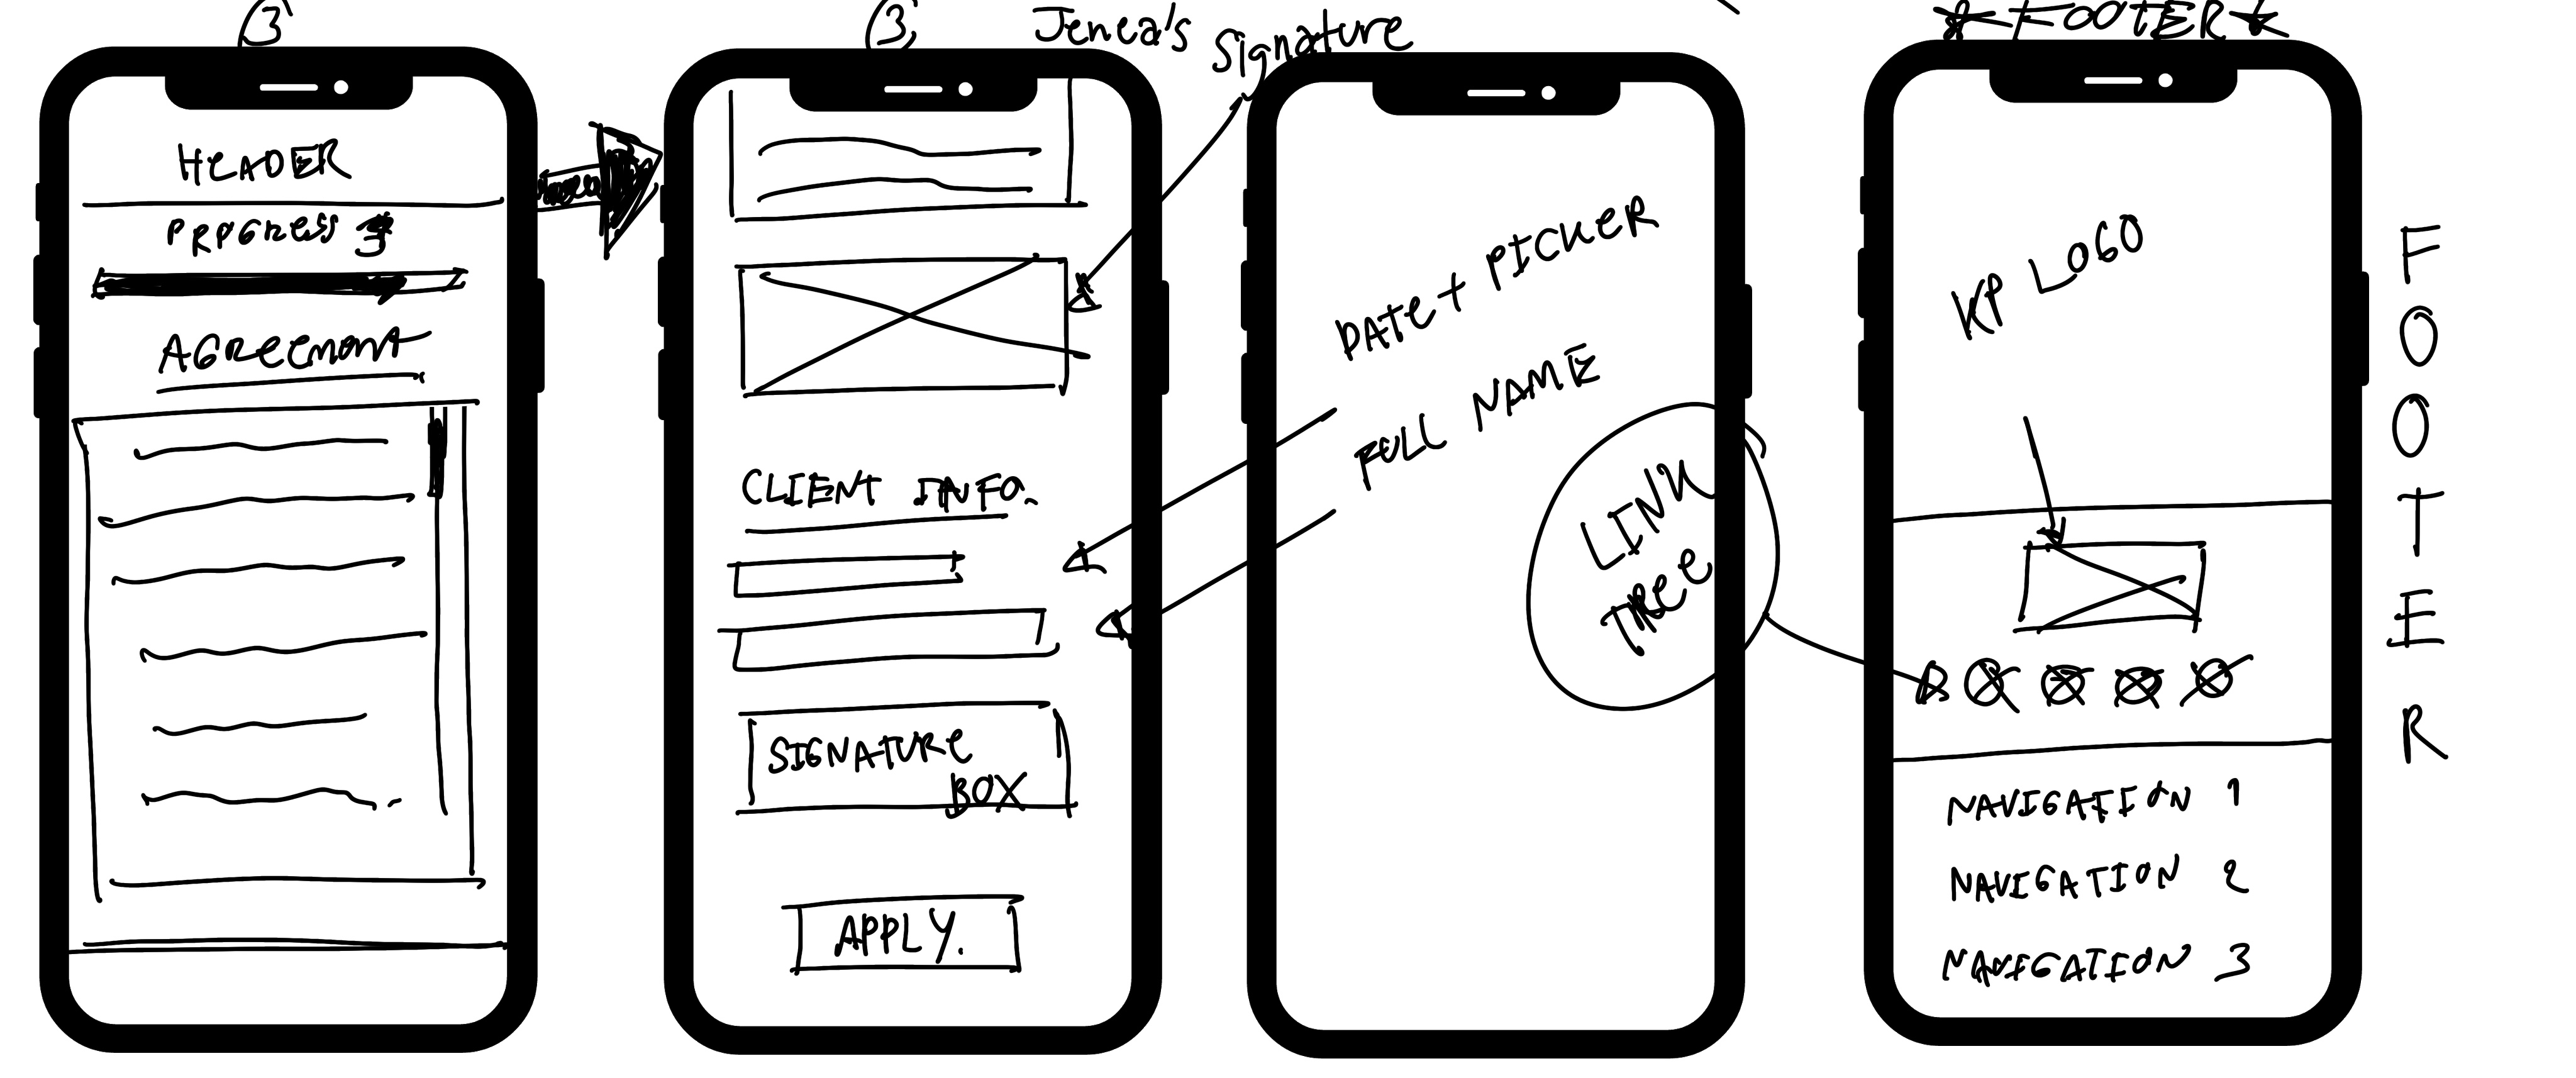 3
HEADER
PROGRESS 3
AGREEMENT
3
Jenea's Signature
CLIENT INFO.
SIGNATURE
BOX
APPLY.
DATE + PICKER
FULL NAME
LINK
TREE
* FOOTER *
KP LOGO
NAVIGATION 1
NAVIGATION 2
NAVIGATION 3
FOOTER